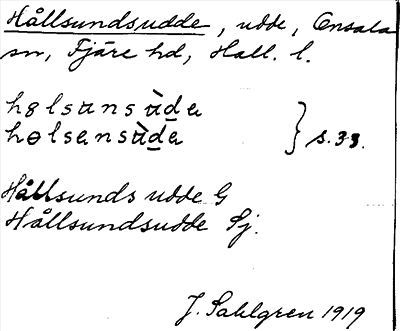 Hållsundsudde, udde, Onsala
sn, Fjäre hd, Hall. l.
hɵlsunsùde
hɵlsensùde } s. 33.
Hållsunds udde G
Hållsundsudde Sj.
J. Sahlgren 1919